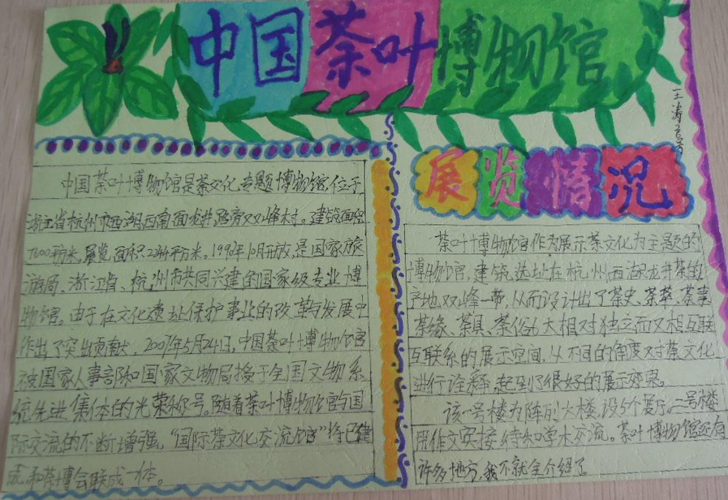 中国茶叶博物馆
中国茶叶博物馆是茶文化专题博物馆,位于
浙江省杭州市西湖西南面龙井路旁双峰村。建筑面积
7600平方米,展览面积2244平方米。1990年10月开放,是国家旅
游局、浙江省、杭州市共同兴建的国家级专业博
物馆。由于在文化遗址保护事业的改革与发展中
作出了突出贡献,2001年5月24日,中国茶叶博物馆
被国家人事部和国家文物局授于全国文物系
统先进集体的光荣称号。随着茶叶博物馆与国
际交流的不断增强,“国际茶文化交流馆”将已建
成和茶博会联成一体。
展览情况
茶叶博物馆作为展示茶文化为主题的
博物馆,建筑选址在杭州西湖龙井茶的
产地双峰一带,从而设计出了茶史、茶萃、茶事
茶缘、茶具、茶俗六大相对独立而又相互联
互联系的展示空间,从不同的角度对茶文化
进行诠释,起到了很好的展示效果。
该一号楼为阵列大楼,设5个展厅。二号楼
用作交实接待和学术交流。茶叶博物馆还有
许多地方,我不就全介绍了